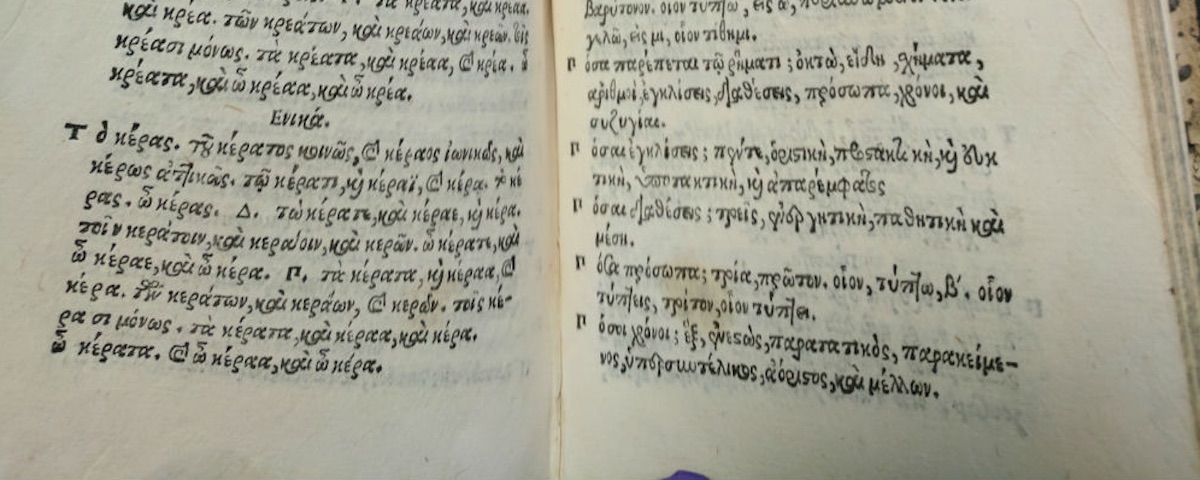 καὶ κρέα. τῶν κρεάτων, καὶ κρεάων, καὶ κρεῶν. τοῖς
κρέασι μόνως. τὰ κρέατα, καὶ κρέαα, καὶ κρέα. ὦ
κρέατα, καὶ ὦ κρέαα, καὶ ὦ κρέα.
Ενικά.
Τ ὸ κέρας. τοῦ κέρατος κοινῶς, καὶ κέραος ἰωνικῶς, καὶ
κέρως ἀττικῶς. τῷ κέρατι, κὴ κέραϊ, καὶ κέρα. τὸ κέ
ρας. ὦ κέρας. Δ. τὼ κέρατε, καὶ κέραε, κὴ κέρα.
τοῖν κεράτοιν, καὶ κεράοιν, καὶ κερῶν. ὦ κέρατε, καὶ
ὦ κέραε, καὶ ὦ κέρα. Π. τὰ κέρατα, κὴ κέραα, καὶ
κέρα. τῶν κεράτων, καὶ κεράων, καὶ κερῶν. τοῖς κέ-
ρα σι μόνως. τὰ κέρατα, καὶ κέραα, καὶ κέρα.
ὦ κέρατα. καὶ ὦ κέραα, καὶ ὦ κέρα.
βαρύτονον. οἷον τύπτω, εἰς
γελῶ, εἰς μι, οἷον τίθημι.
Π όσα παρέπεται τῷ ῥήματι; ὀκτὼ, εἴδη, σχήματα,
ἀριθμοὶ, ἐγκλίσεις, διαθέσεις, πρόσωπα, χρόνοι, καὶ
συζυγίαι.
Π όσαι ἐγκλίσεις; πέντε, ὁριστικὴ, προστακτικὴ, κὴ εὐκ
τικὴ, ὑποτακτικὴ, κὴ ἀπαρέμφατος
Π όσαι διαθέσεις; τρεῖς, ἐνεργητικὴ, παθητικὴ καὶ
μέση.
Π όσα πρόσωπα; τρία, πρῶτον. οἷον, τύπτω, β΄. οἷον
τύπτεις, τρίτον, οἷον τύπτει.
Π όσοι χρόνοι; ἓξ, ἐνεστὼς, παρατατικὸς, παρακείμε-
νος, ὑπερσυντέλικος, ἀόριστος, καὶ μέλλων.